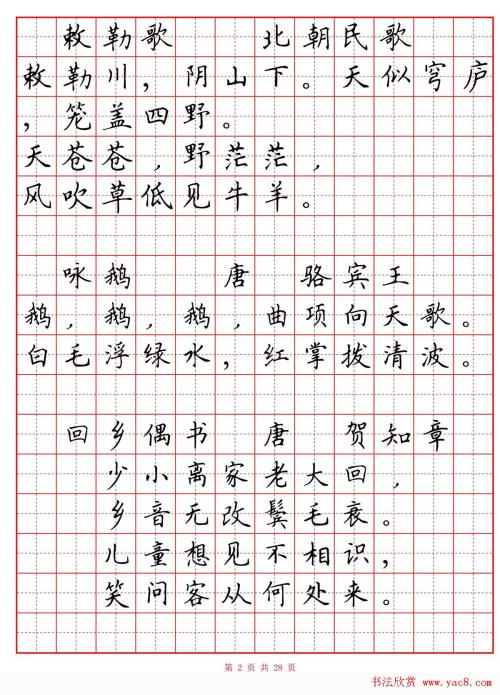 敕勒歌 北朝民歌
敕勒川，阴山下。天似穹庐
，笼盖四野。
天苍苍，野茫茫，
风吹草低见牛羊。
咏鹅 唐 骆宾王
鹅，鹅，鹅，曲项向天歌。
白毛浮绿水，红掌拨清波。
回乡偶书 唐 贺知章
少小离家老大回，
乡音无改鬓毛衰。
儿童想见不相识，
笑问客从何处来。
第 2 页 共 28 页
书法欣赏 www.yac8.com